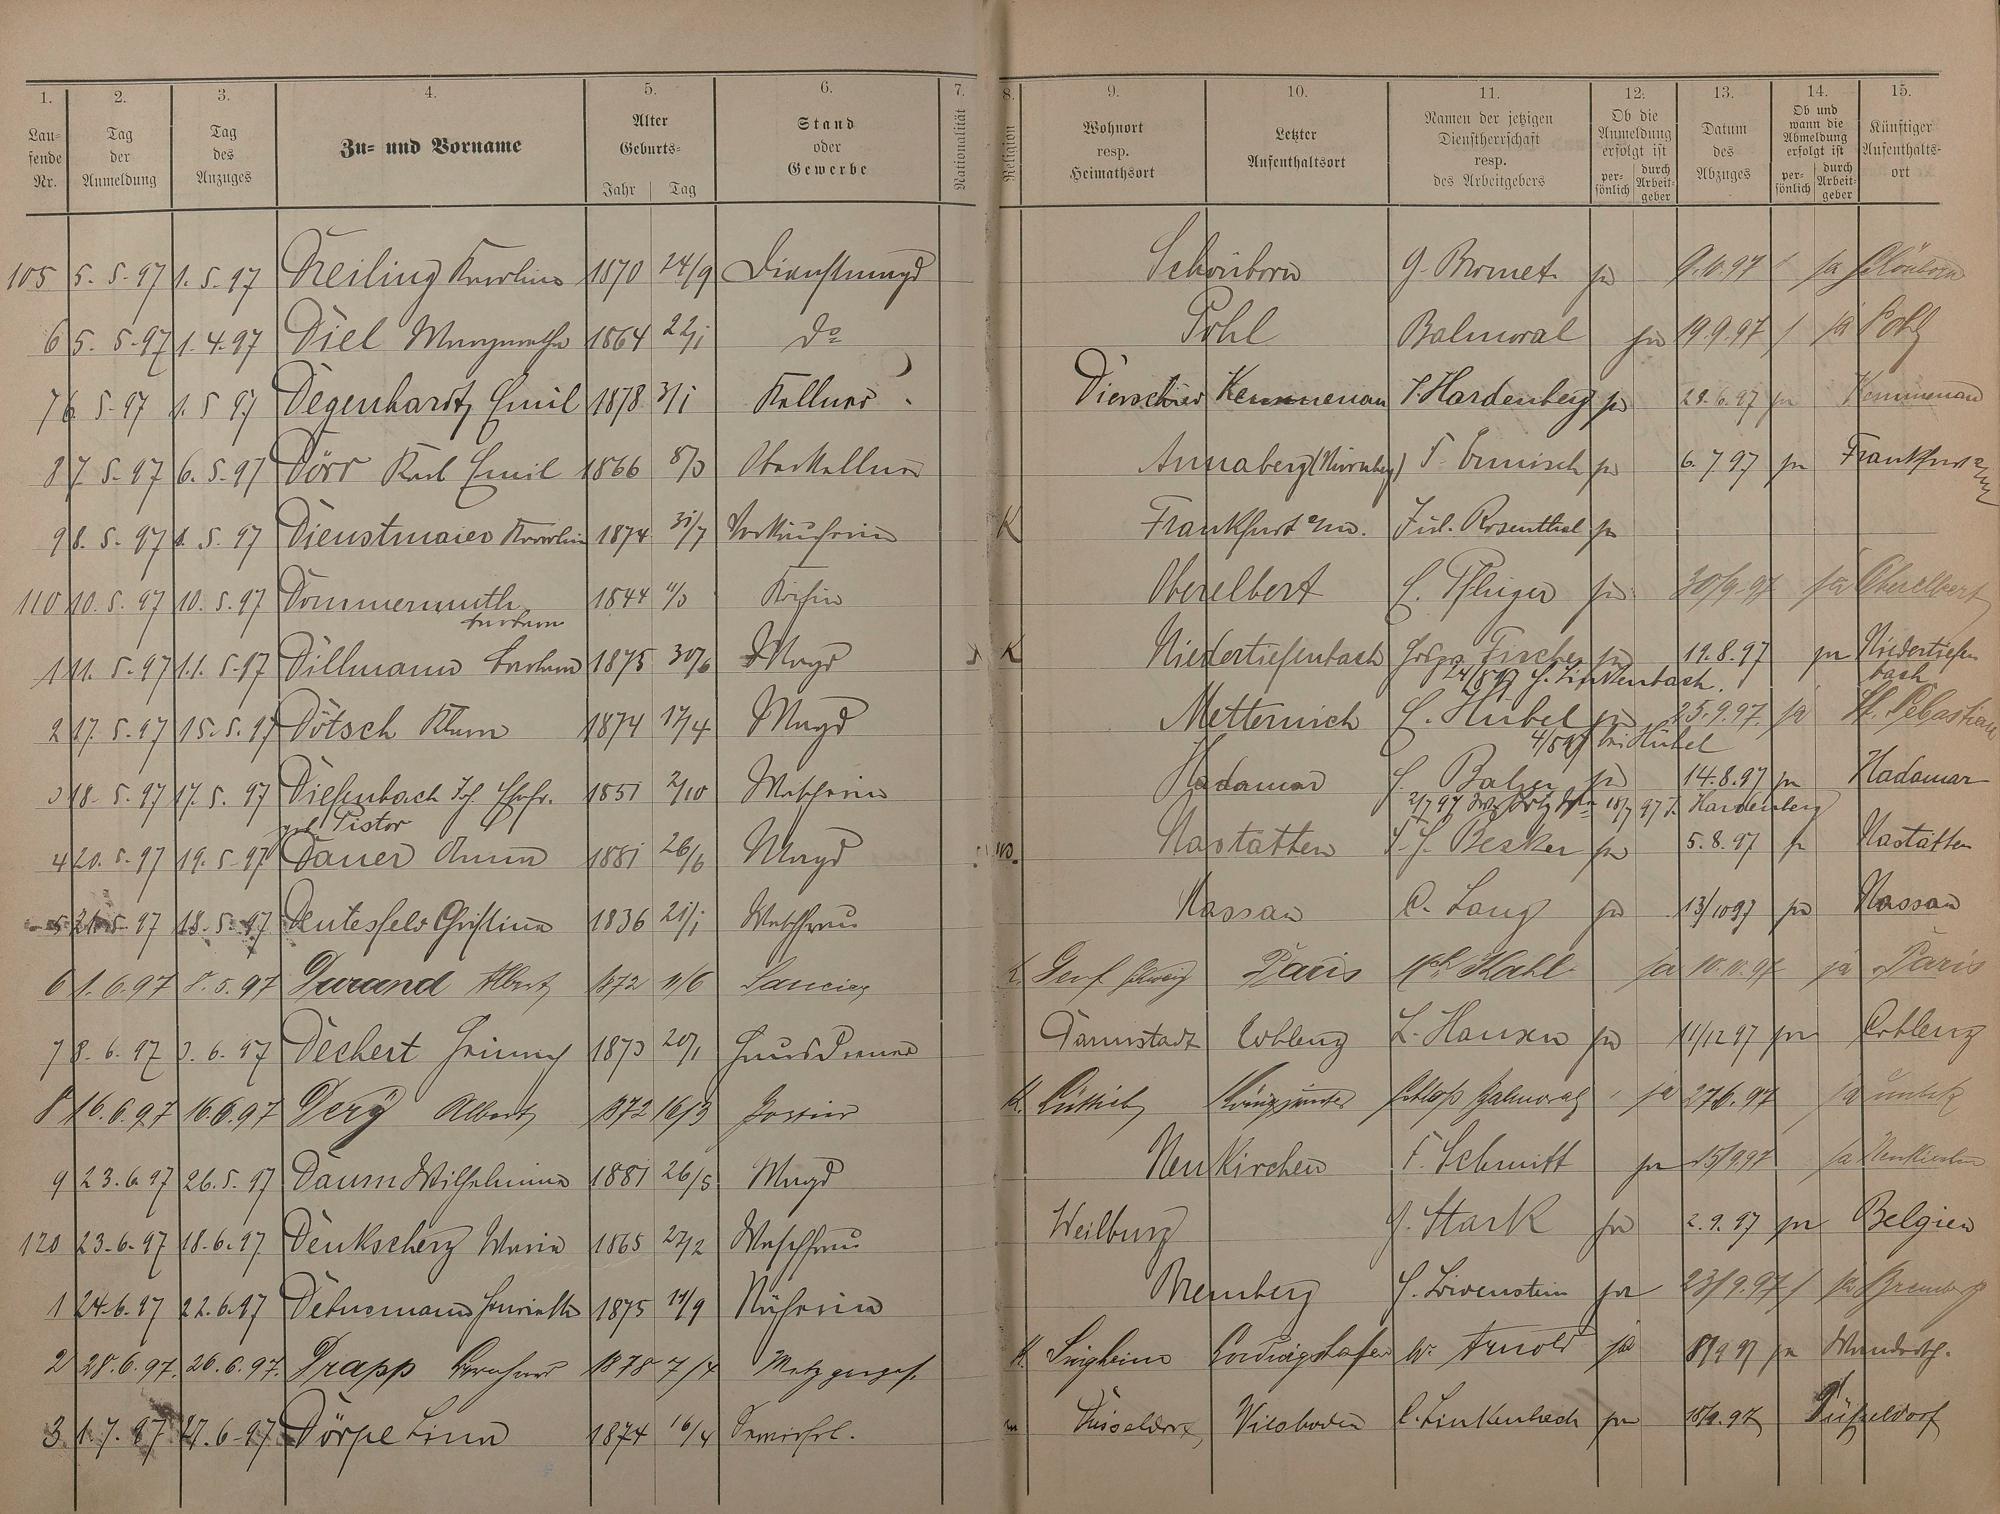 1. 2. 3. 4. 5. 6. 7. 8. 9. 10. 11. 12. 13. 14. 15.
Lau-
fende
Nr.
Tag
der
Anmeldung
Tag
des
Anzuges
Zu- und Vorname
Alter
Geburts-
Jahr Tag
Stand
oder
Gewerbe
Nationalität
Religion
Wohnort
resp.
Heimathsort
Letzter
Aufenthaltsort
Namen der jetzigen
Dienstherrschaft
resp.
des Arbeitgebers
Ob die
Anmeldung
erfolgt ist
per-
sönlich
durch
Arbeit-
geber
Datum
des
Abzuges
Ob und
wann die
Abmeldung
erfolgt ist
per-
sönlich
durch
Arbeit-
geber
Künftiger
Aufenthalts-
ort
105 5. 5. 97 1. 5. 97 Karolina 1870 24/9 Dienstmagd Schönborn ja 9.6.97 ja Schönborn
6 5. 5. 97 1. 4. 97 Diel Margarethe 1864 22/1 do Pohl Balmoral ja 19.9.97 ja Pohl
7 6. 5. 97 1. 5. 97 Degenhardt Emil 1878 3/1 Kellner Kemmenau Hardenberg ja 28.6.97 ja Kemmenau
8 7. 5. 97 6. 5. 97 Dörr Karl Emil 1866 8/3 Oberkellner Annaberg (Nürnberg) ja 6. 7 97 ja Frankfurt a/M
9 8. 5. 97 5. 97 Dienstmaier Karolin 1874 31/7 Verkäuferin K Frankfurt a/m. Rosenthal ja
110 10. 5. 97 10. 5. 97 Dommermuth 1844 Köchin Oberelbert ja 30/9.97 ja Oberelbert
Barbara
1 11. 5. 97 11. 5. 97 Dillmann Barbara 1875 30/6 Magd K Niedertiefenbach Fischer ja 19.8.97 ja Niedertiefen
bach
24/5 97 Linkenbach.
2 17. 5. 97 15. 5. 97 Dötsch 1874 17/4 Magd Metternich Hübel ja 25.9.97. ja St. Sebastian
bei Hübel
3 18. 5. 97 17. 5. 97 Diefenbach Ehefr. 1851 2/10 Wäscherin Hadamar Balzer ja 14.8.97 ja Hadamar
geb. Pistor
2/7 97 18/7 97 Hardenberg
4 20. 5. 97 19. 5. 97 Dauer Anna 1881 26/6 Magd Nastätten Becker ja 5. 8. 97 ja Nastätten
5 21. 5. 97 18. 5. 97 Christina 1836 21/1 Waschfrau Nassau C. Lang ja 13/10 97 ja Nassau
6 1. 6. 97 8. 5. 97 Durand Albert 1872 11/6 Saucier K. Genf Schweiz Paris Kahl ja 10. 10. 97 ja Paris
7 8. 6. 97 3. 6. 97 Dechert Heinrich 1873 20/1 Hausdiener Darmstadt Coblenz L. Hansen ja 11/12 97 ja Coblenz
8 16. 6. 97 16. 6. 97 Albert 1872 16/3 K. Lüttich Königswinter Schloss Balmoral ja 27.6.97 ja unbek
9 23. 6. 97 26. 5. 97 Daum Wilhelmine 1881 26/5 Magd Neukirchen F. Schmitt ja 15/9 97 ja Neukirchen
120 23. 6. 97 18. 6. 97 Denkscherz Maria 1865 27/2 Waschfrau Weilburg J. Stark ja 2. 9. 97 ja Belgien
1 24. 6. 97 22. 6. 97 Henriette 1875 19/9 Näherin Bremberg Löwenstein ja 23/9.97 ja Bremberg
2 28. 6. 97. 26. 6. 97. Drapp 1878 7/4 Metzgerges. K. Ludwigshafen W. Arnold ja 8/9 97 ja
3 1. 7. 97 27. 6. 97 Dörpe Lina 1874 16/4 Düsseldorf, Wiesbaden C. Linkenbach ja 18/9. 97 Düsseldorf